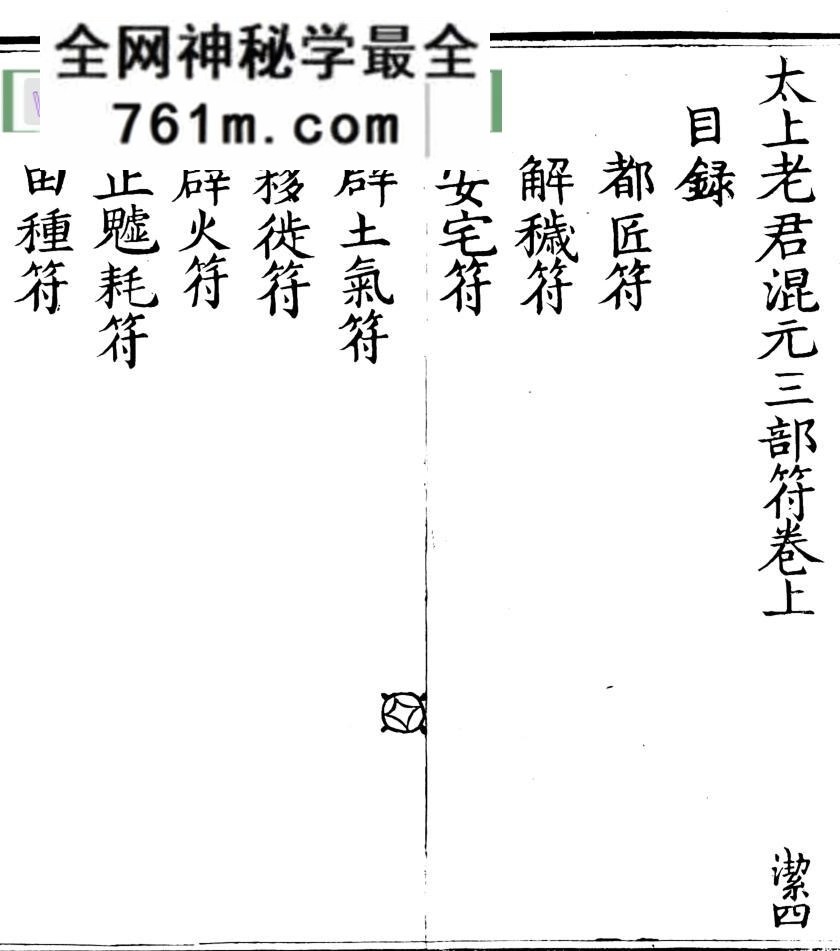 太上老君混元三部符卷上
潔四
目録
都匠符
解穢符
安宅符
辟土氣符
移徙符
辟火符
止魖耗符
田種符
全网神秘学最全
761m.com